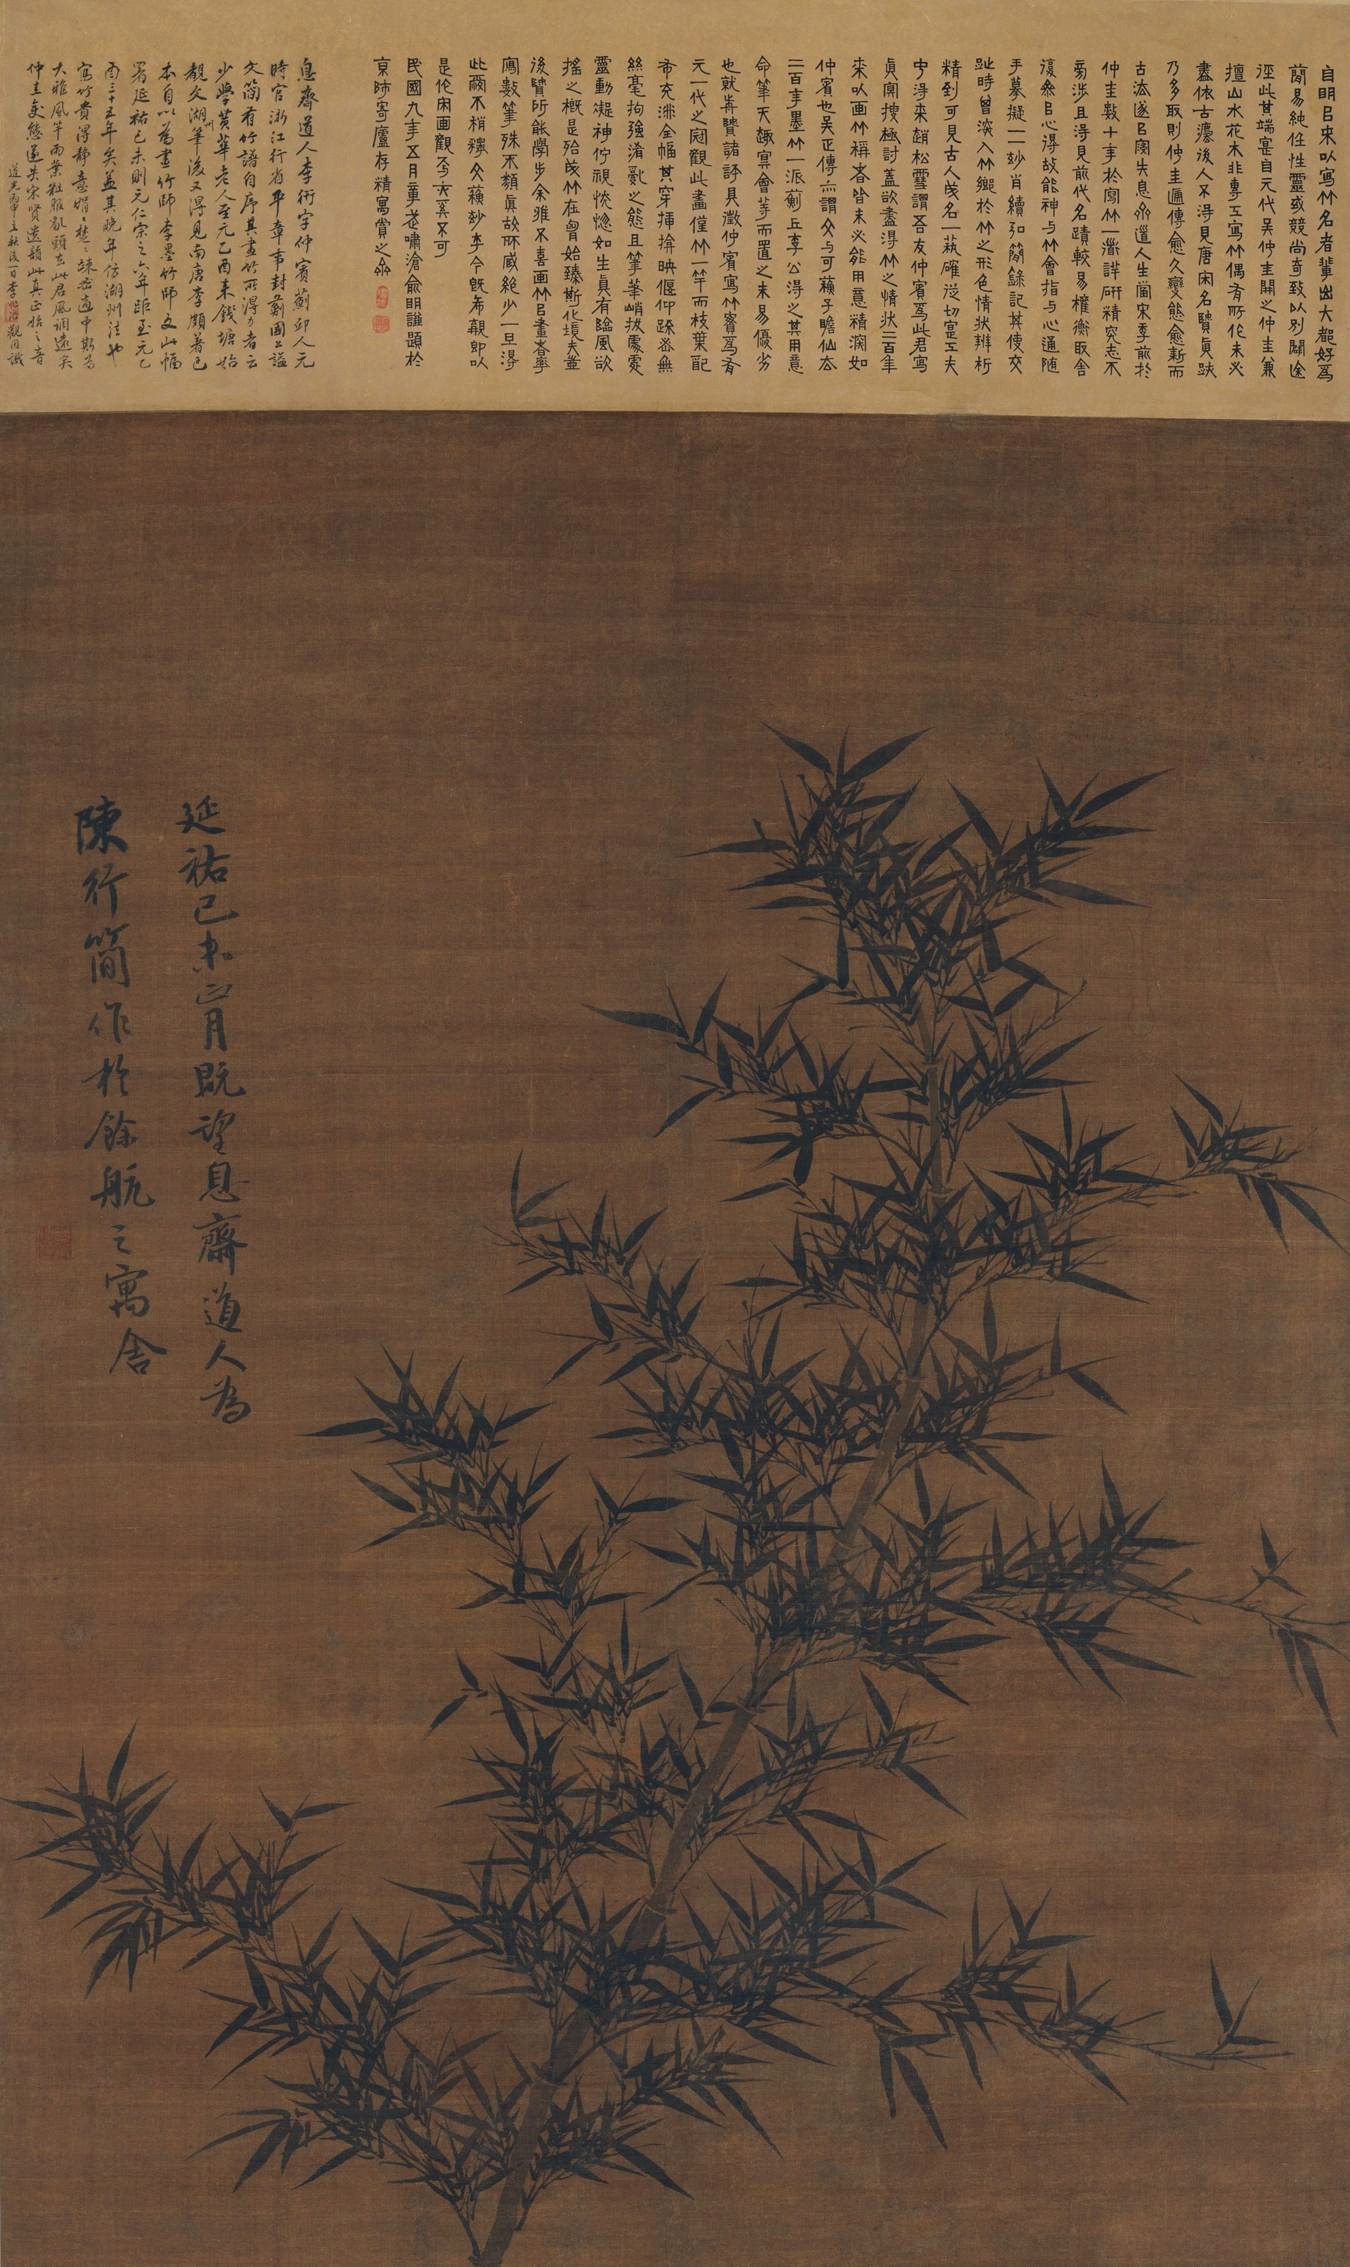 自明㠯宋以寫竹名者輩出大都好爲
簡易純任性靈或競尚奇致以別闢途
徑此其端寔自元代吴仲圭開之仲圭兼
擅山水花木非專工寫竹偶有所作未必
盡依古灋後人不得見唐宋名賢眞跌
乃多取則仲圭遞傳愈久變態愈新而
古法遂㠯寖失息齋道人生當宋季前於
仲圭數十年於寫竹一灋詳研精究志不
旁涉且淂見前代名蹟較易權衡取舍
復參㠯心得故能神与竹會指与心通随
手摹擬一一妙肖續弘簡錄記其使交
趾時曾深入竹鄉於竹之形色情狀辨析
精到可見古人成名一埶確從切寔工夫
中淂来趙松雪謂吾友仲賓爲此君寫
眞冥搜極討蓋欲盡淂竹之情狀二百年
来以画竹稱者皆未必能用意精深如
仲賓也吴正傳亦謂文与可蘇子瞻仙去
二百年墨竹一派薊丘李公淂之其用意
命筆天趣冥會等而置之未易優劣
也就昔賢諸評具徵仲賓寫竹實爲有
元一代之冠觀此畫僅竹一竿而枝葉配
布充沛全幅其穿揷揜映偃仰疎密無
絲毫拘強淆亂之態且筆筆峭拔處處
靈動凝神佇視恍惚如生眞有臨風欲
揺之概是殆成竹在胷始臻斯化境夫豈
後賢所能學步余雅不喜画竹㠯畫者率
寫數筆殊不類眞故所臧絶少一旦淂
此爾不稍穢文蘓玅李今旣希覯即以
是伦宋画觀奚不可
民國九年五月童心嘯滄俞明謹題於
京師寄廬存精寓賞之齋
息齋道人李衎字仲賓薊邱人元
時官浙江行省平章事封薊國公諡
文簡有竹譜自序其畫竹所得力者云
少學黄華老人至元乙酉来錢塘始
覩文湖州筆後又淂見南唐李頗著色
本自以爲畫竹師李墨竹師文此幅
署延祐己未則元仁宗之六年距至元乙
酉三十五年矣蓋其晚年仿湖州法也
寫竹貴淂静意娟娟楚楚疎密適中斯爲
大雅風竿雨葉粗服亂頭去此君風調遠矣
仲圭变態遂失宋賢遺韻此真正法之音
道光丙申立秋後一日李觀因識
延祐己未正月既望息齋道人為
陳行簡作於餘杭之寓舍